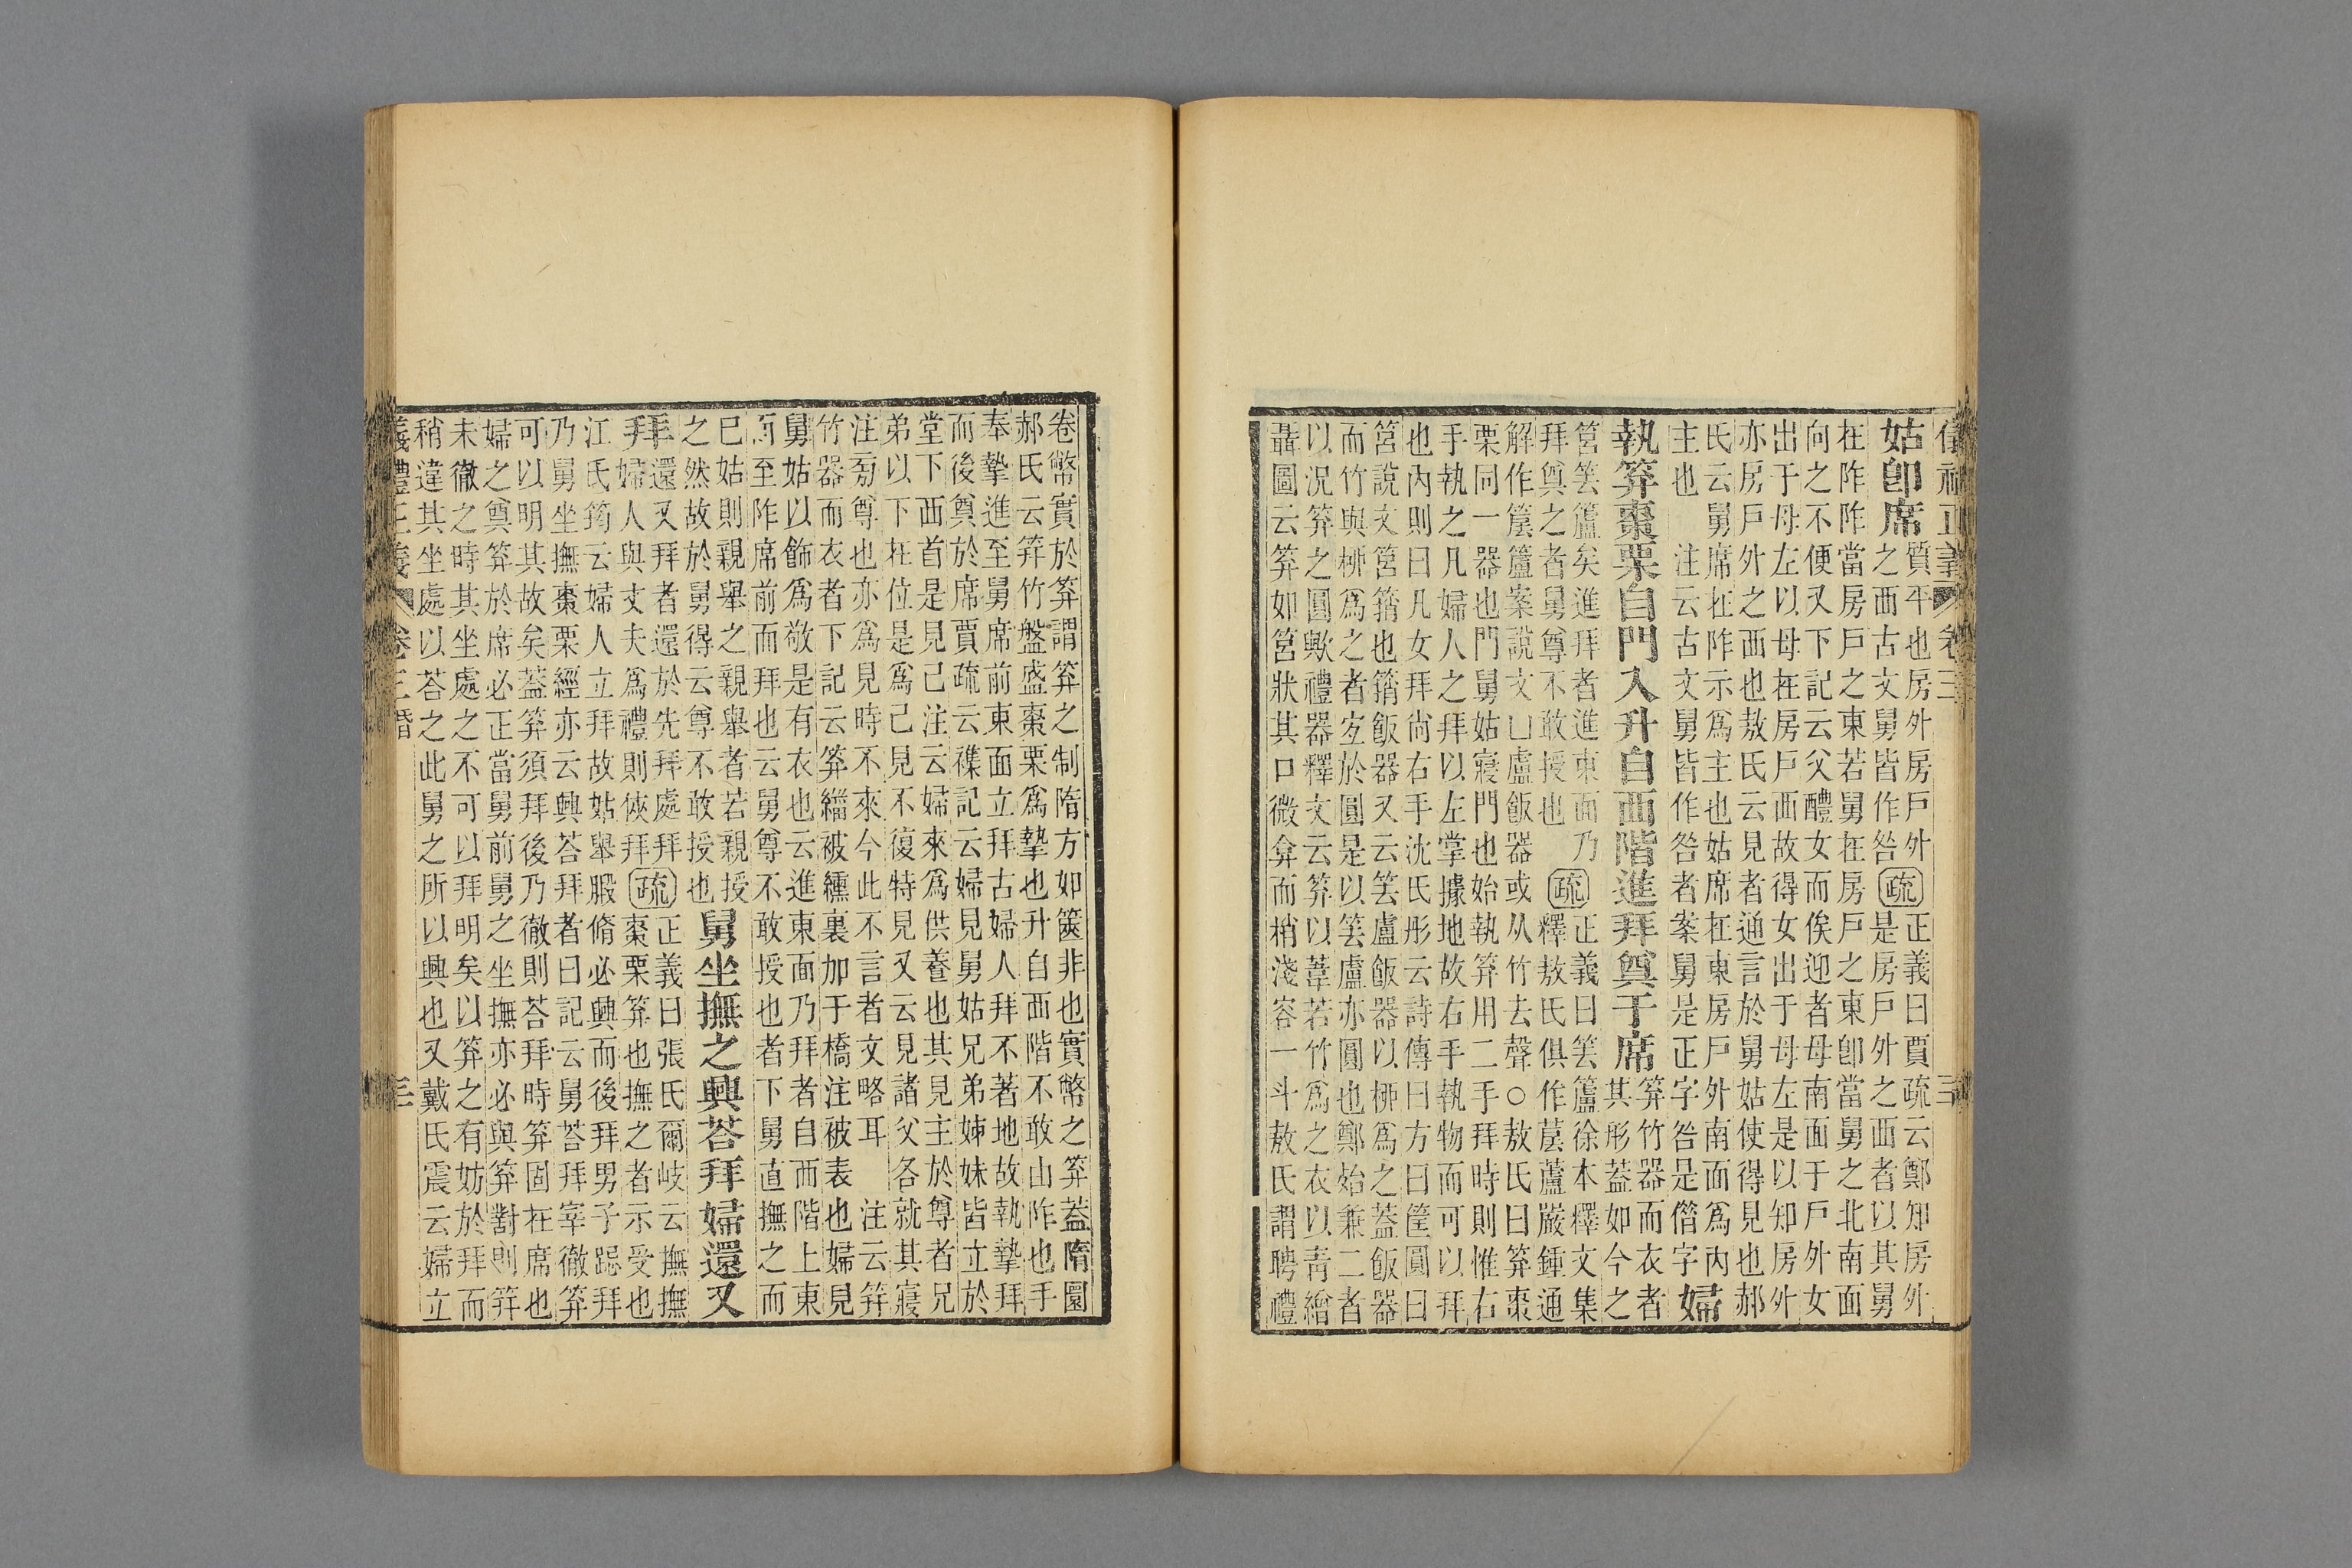 儀禮正義 卷三 三
姑即席 質平也房外房戶外
之西古文舅皆作咎
疏 正義曰賈疏云鄭知房外
是房戶外之西者以其舅
在阼阼當房戶之東若舅在房戶之東即當舅之北南面
向之不便又下記云父醴女而俟迎者母南面于戶外女
出于母左以母在房戶西故得女出于母左是以知房外
亦房戶外之西也敖氏云見者通言於舅姑使得見也郝
氏云舅席在阼示爲主也姑席在東房戶外南面爲內
主也　注云古文舅皆作咎者案舅是正字咎是借字 婦
執笲棗栗自門入升自西階進拜奠于席 笲竹器而衣者
其形蓋如今之
筥𥬔籚矣進拜者進東面乃
拜奠之者舅尊不敢授也
疏 正義曰𥬔籚徐本釋文集
釋敖氏俱作蘆嚴鍾通
解作簠案說文凵盧飯器或从竹去聲○敖氏曰笲棗
栗同一器也門舅姑寢門也始執笲用二手拜時則惟右
手執之凡婦人之拜以左掌據地故右手執物而可以拜
也內則曰凡女拜尚右手沈氏彤云詩傳曰方曰筐圓曰
筥說文筥䈰也䈰飯器又云𥬔盧飯器以柳爲之蓋飯器
而竹與柳爲之者於圓是以𥬔盧亦圓也鄭始兼二者
以況笲之圓歟禮器釋文云笲以葦若竹爲之衣以青繒
聶圖云笲如筥狀其口微弇而稍淺容一斗敖氏謂聘禮
卷幣實於笲謂笲之制隋方如篋非也實幣之笲蓋隋圜
郝氏云笲竹盤盛棗栗爲摯也升自西階不敢由阼也手
奉摯進至舅席前東面立拜古婦人拜不著地故執摯拜
而後奠於席賈疏云襍記云婦見舅姑兄弟姊妹皆立於
堂下西首是見己注云婦來爲供養也其見主於尊者兄
弟以下在位是爲己見不復特見又云見諸父各就其寢
注㫄尊也亦爲見時不來今此不言者文略耳　注云笲
竹器而衣者下記云笲緇被纁裏加于橋注被表也婦見
舅姑以飾爲敬是有衣也云進東面乃拜者自西階上東
面至阼席前而拜也云舅尊不敢授也者下舅直撫之而
已姑則親舉之親舉者若親授
之然故於舅得云尊不敢授也
舅坐撫之興荅拜婦還又
拜 還又拜者還於先拜處拜
婦人與丈夫爲禮則俠拜
疏 正義曰張氏爾岐云撫撫
棗栗笲也撫之者示受也
江氏筠云婦人立拜故姑舉腶脩必興而後拜男子跽拜
乃舅坐撫棗栗經亦云興荅拜者曰記云舅荅拜宰徹笲
可以明其故矣蓋笲須拜後乃徹則荅拜時笲固在席也
婦之奠笲於席必正當舅前舅之坐撫亦必與笲對則笲
未徹之時其坐處之不可以拜明矣以笲之有妨於拜而
稍違其坐處以荅之此舅之所以興也又戴氏震云婦立
義禮正義 卷三